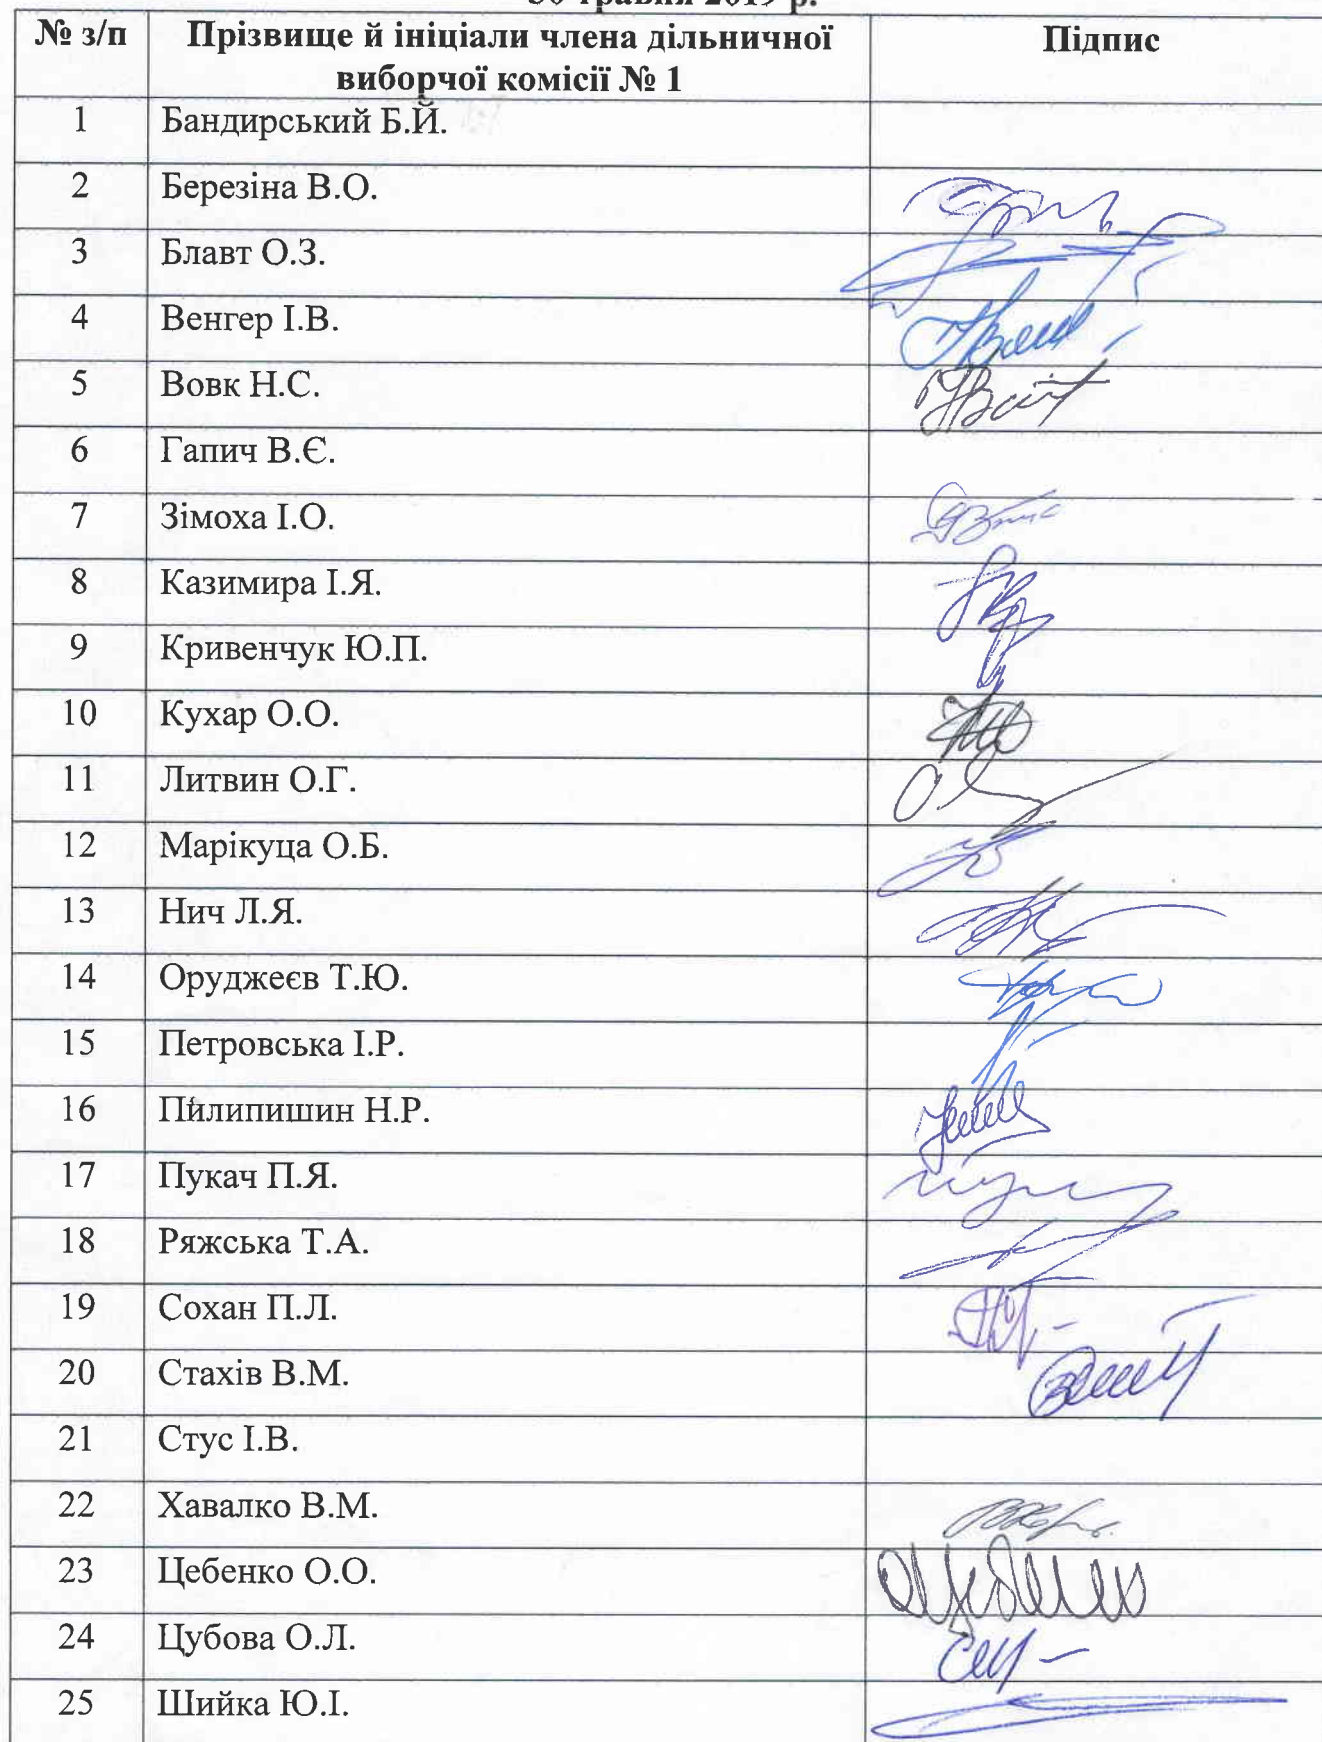 30 травня 2019 р.
№ з/п Прізвище й ініціали члена дільничної виборчої комісії № 1 Підпис
1 Бандирський Б.Й.
2 Березіна В.О.
3 Блавт О.З.
4 Венгер І.В.
5 Вовк Н.С.
6 Гапич В.Є.
7 Зімоха І.О.
8 Казимира І.Я.
9 Кривенчук Ю.П.
10 Кухар О.О.
11 Литвин О.Г.
12 Марікуца О.Б.
13 Нич Л.Я.
14 Оруджеєв Т.Ю.
15 Петровська І.Р.
16 Пилипишин Н.Р.
17 Пукач П.Я.
18 Ряжська Т.А.
19 Сохан П.Л.
20 Стахів В.М.
21 Стус І.В.
22 Хавалко В.М.
23 Цебенко О.О.
24 Цубова О.Л.
25 Шийка Ю.І.